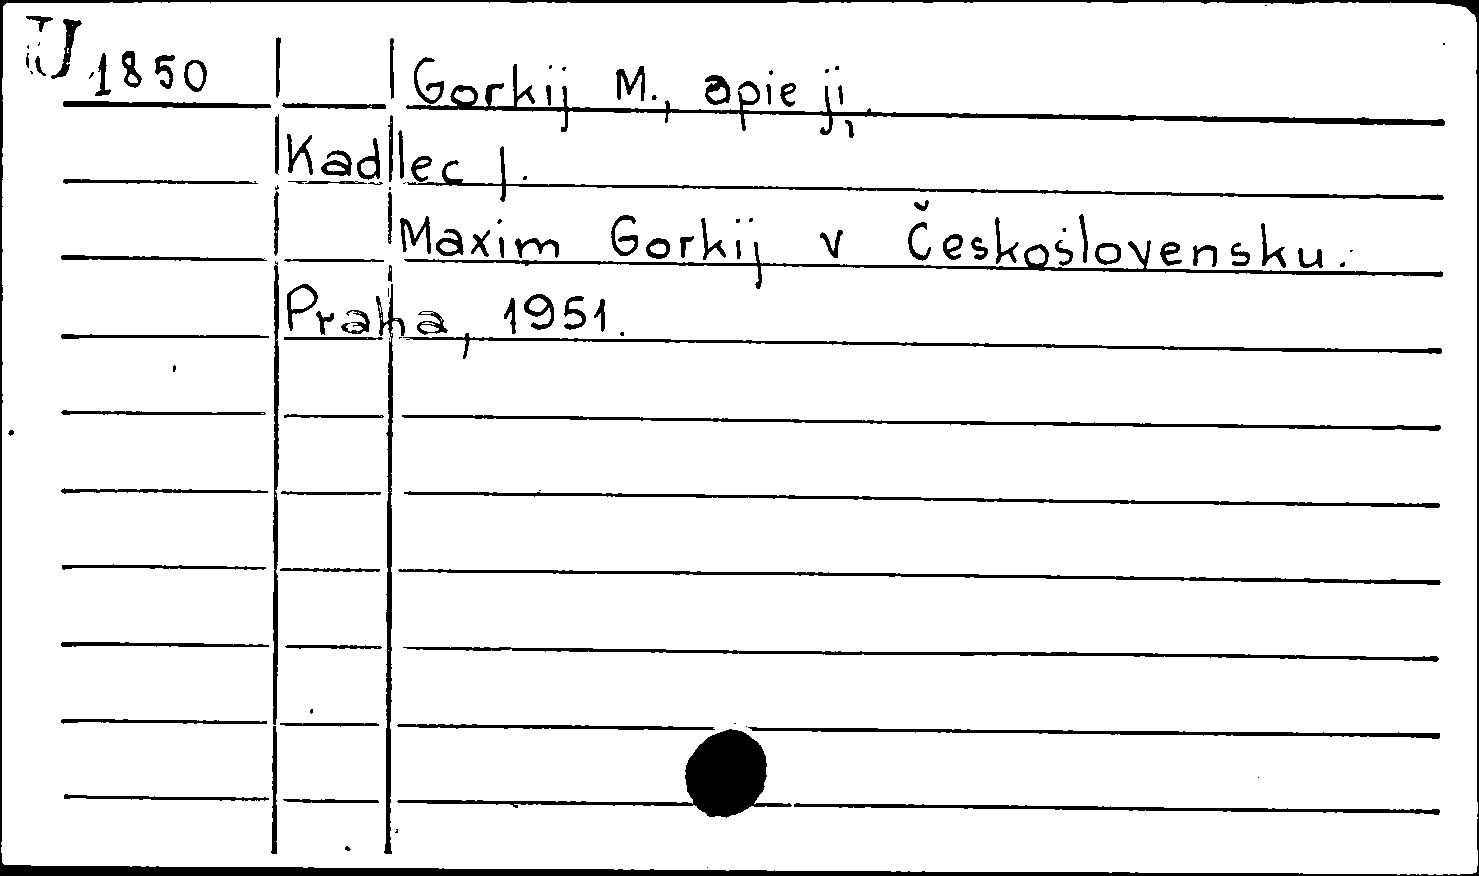 U 1850 Gorkij M., apie jį
Kadlec J.
Maxim Gorkij v Československu.
Praha, 1951.